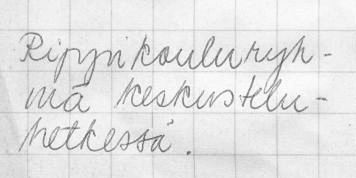 Ripyikouluryh-
mä keskustelu-
hetkessä.